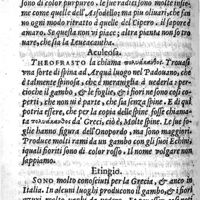 sono di color purpureo. le sue radici sono molte insie-
me come quelle dell'Asfodello; ma piu olivari, che han
no ogni modo ritratto à quelle del Cipero. il sapore è
amaro. Se questa non vi piace; altra pianta non so tro
nare, che sia la Leucacantha.
Aculeosa.
THEOFRASTO la chiama Trouasi
vna sorte di spina ad Arquà luogo nel Padouano, che
è talmente spinosa, che è merauiglia à vederla; specie
che il gambo, & le foglie, & i fiori ne sono così co-
perti, che non ha parte, che sia senza spine. E di qui
potria essere, che per la copia delle spine fosse chiama
ta da' Greci, cioè, Molte spine. Le sue fo-
glie hanno figura dell'Onopordo, ma sono maggiori.
Produce molti rami da vn gambo con gli suoi Echini,
i quali fiori sono di color rosso. Il nome volgare non
sappiamo.
Eringio.
SONO molto conosciuti per la Grecia, & anco in
Italia. In alcuni luoghi producono il gambo, & i fiori